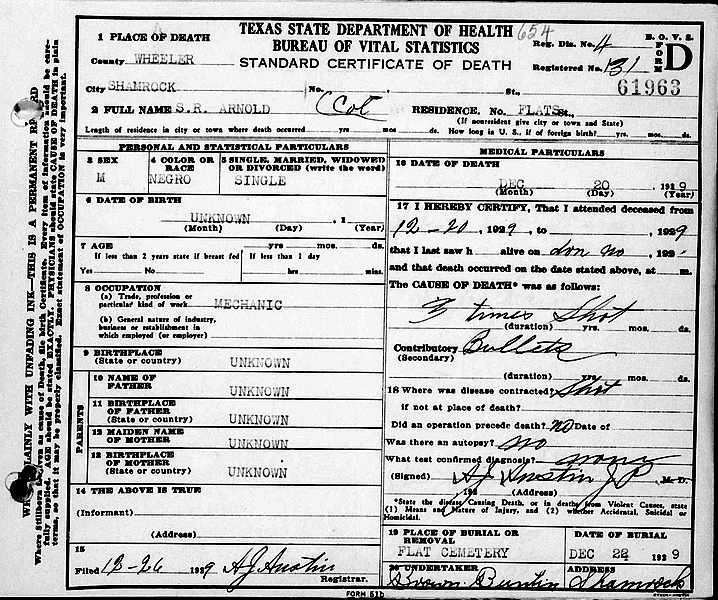 TEXAS STATE DEPARTMENT OF HEALTH
BUREAU OF VITAL STATISTICS
STANDARD CERTIFICATE OF DEATH
654
Reg. Dis. No. 4
Registered No. 131
B. O. V. S.
FORM D
61963
1 PLACE OF DEATH
County WHEELER
City SHAMROCK No. St.,
2 FULL NAME S.R. ARNOLD (Col RESIDENCE, No. FLATS St.,
(If nonresident give city or town and State)
Length of residence in city or town where death occurred yrs. mos. ds. How long in U. S., if of foreign birth? yrs. mos. ds.
PERSONAL AND STATISTICAL PARTICULARS
3 SEX
M
4 COLOR OR RACE
NEGRO
5 SINGLE, MARRIED, WIDOWED OR DIVORCED (write the word)
SINGLE
6 DATE OF BIRTH
UNKNOWN , 1
(Month) (Day) (Year)
7 AGE yrs. mos. ds.
If less than 2 years state if breast fed If less than 1 day
Yes No hrs. mins.
8 OCCUPATION
(a) Trade, profession or
particular kind of work MECHANIC
(b) General nature of industry,
business or establishment in
which employed (or employer)
9 BIRTHPLACE
(State or country) UNKNOWN
PARENTS
10 NAME OF
FATHER UNKNOWN
11 BIRTHPLACE
OF FATHER
(State or country) UNKNOWN
12 MAIDEN NAME
OF MOTHER UNKNOWN
13 BIRTHPLACE
OF MOTHER
(State or country) UNKNOWN
14 THE ABOVE IS TRUE
(Informant)
(Address)
15
Filed 12-26 1929 AJ Austin
Registrar.
MEDICAL PARTICULARS
16 DATE OF DEATH
DEC 20 , 1929
(Month) (Day) (Year)
17 I HEREBY CERTIFY, That I attended deceased from
12-20, 1929, to , 1929
that I last saw h alive on don no , 192
and that death occurred on the date stated above, at m.
The CAUSE OF DEATH* was as follows:
3 times Shot
(duration) yrs. mos. ds.
Contributory Bullets
(Secondary)
(duration) yrs. mos. ds.
18 Where was disease contracted? Shot
if not at place of death?
Did an operation precede death? NO Date of
Was there an autopsy? no
What test confirmed diagnosis? none
(Signed) AJ Austin J P M. D.
, 192 (Address)
*State the disease Causing Death, or in deaths from Violent Causes, state
(1) Means and Nature of Injury, and (2) whether Accidental, Suicidal or
Homicidal.
19 PLACE OF BURIAL OR REMOVAL
FLAT CEMETERY
DATE OF BURIAL
DEC 22 1929
20 UNDERTAKER
Brown Buntin
ADDRESS
Shamrock
FORM 51b
PLAINLY WITH UNFADING INK—THIS IS A PERMANENT
cause of Death, file birth Certificate. Every item of information should be care-
fully supplied. AGE should be stated EXACTLY. PHYSICIANS should state CAUSE OF DEATH in plain
terms, so that it may be properly classified. Exact statement of OCCUPATION is very important.